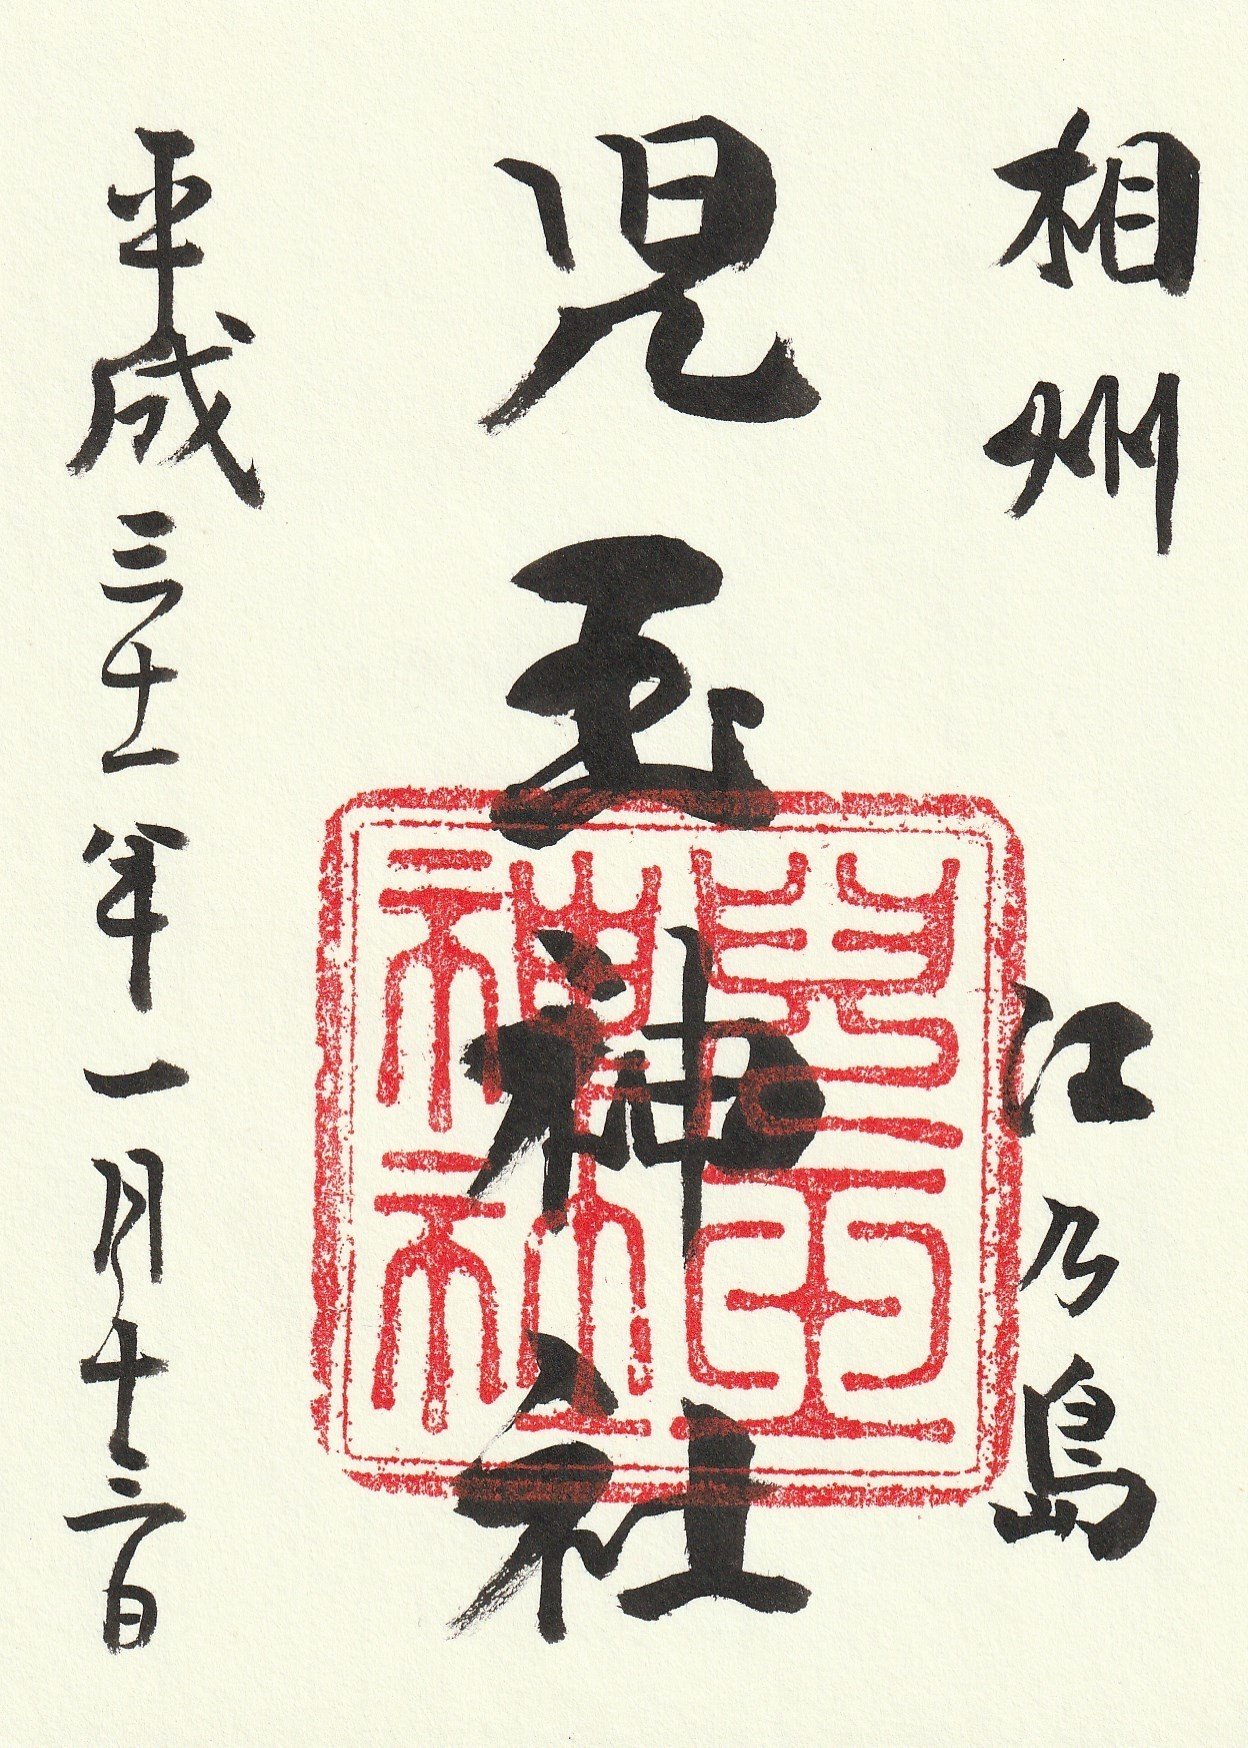 相州 江乃島
児玉神社
平成三十一年一月十三日
兒玉
神社